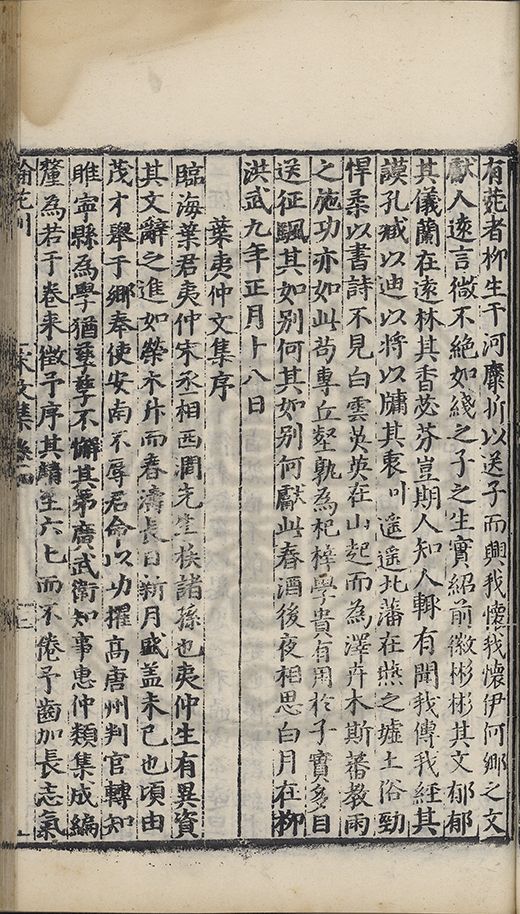 有花者柳生于河麋折以送子而興我懷我懷伊何鄉之文
獻人遠言微不絕如綫之子之生實紹前徽彬彬其文郁郁
其儀蘭在遠林其香苾芬豈期人知人輒有聞我傅我經其
謨孔臧以迪以將以牖其衷川遥遥北藩在燕之墟土俗勁
悍柔以書詩不見白雲英英在山起而為澤卉木斯蕃敎雨
之施功亦如此苟專丘壑孰為杞梓學貴有用於子實多目
送征颿其如别何其如别何獻此春酒後夜相思白月在柳
洪武九年正月十八日
葉夷仲文集序
臨海葉君夷仲宋丞相西澗先生族諸孫也夷仲生有異資
其文辭之進如榮木升而春濤長日新月盛盖未已也頃由
茂才舉于鄉奉使安南不辱君命以功擢高唐州判官轉知
睢寧縣為學猶孳孳不懈其弟廣武衛知事惠仲類集成編
釐為若干卷来徵予序其請至六七而不倦予齒加長志氣